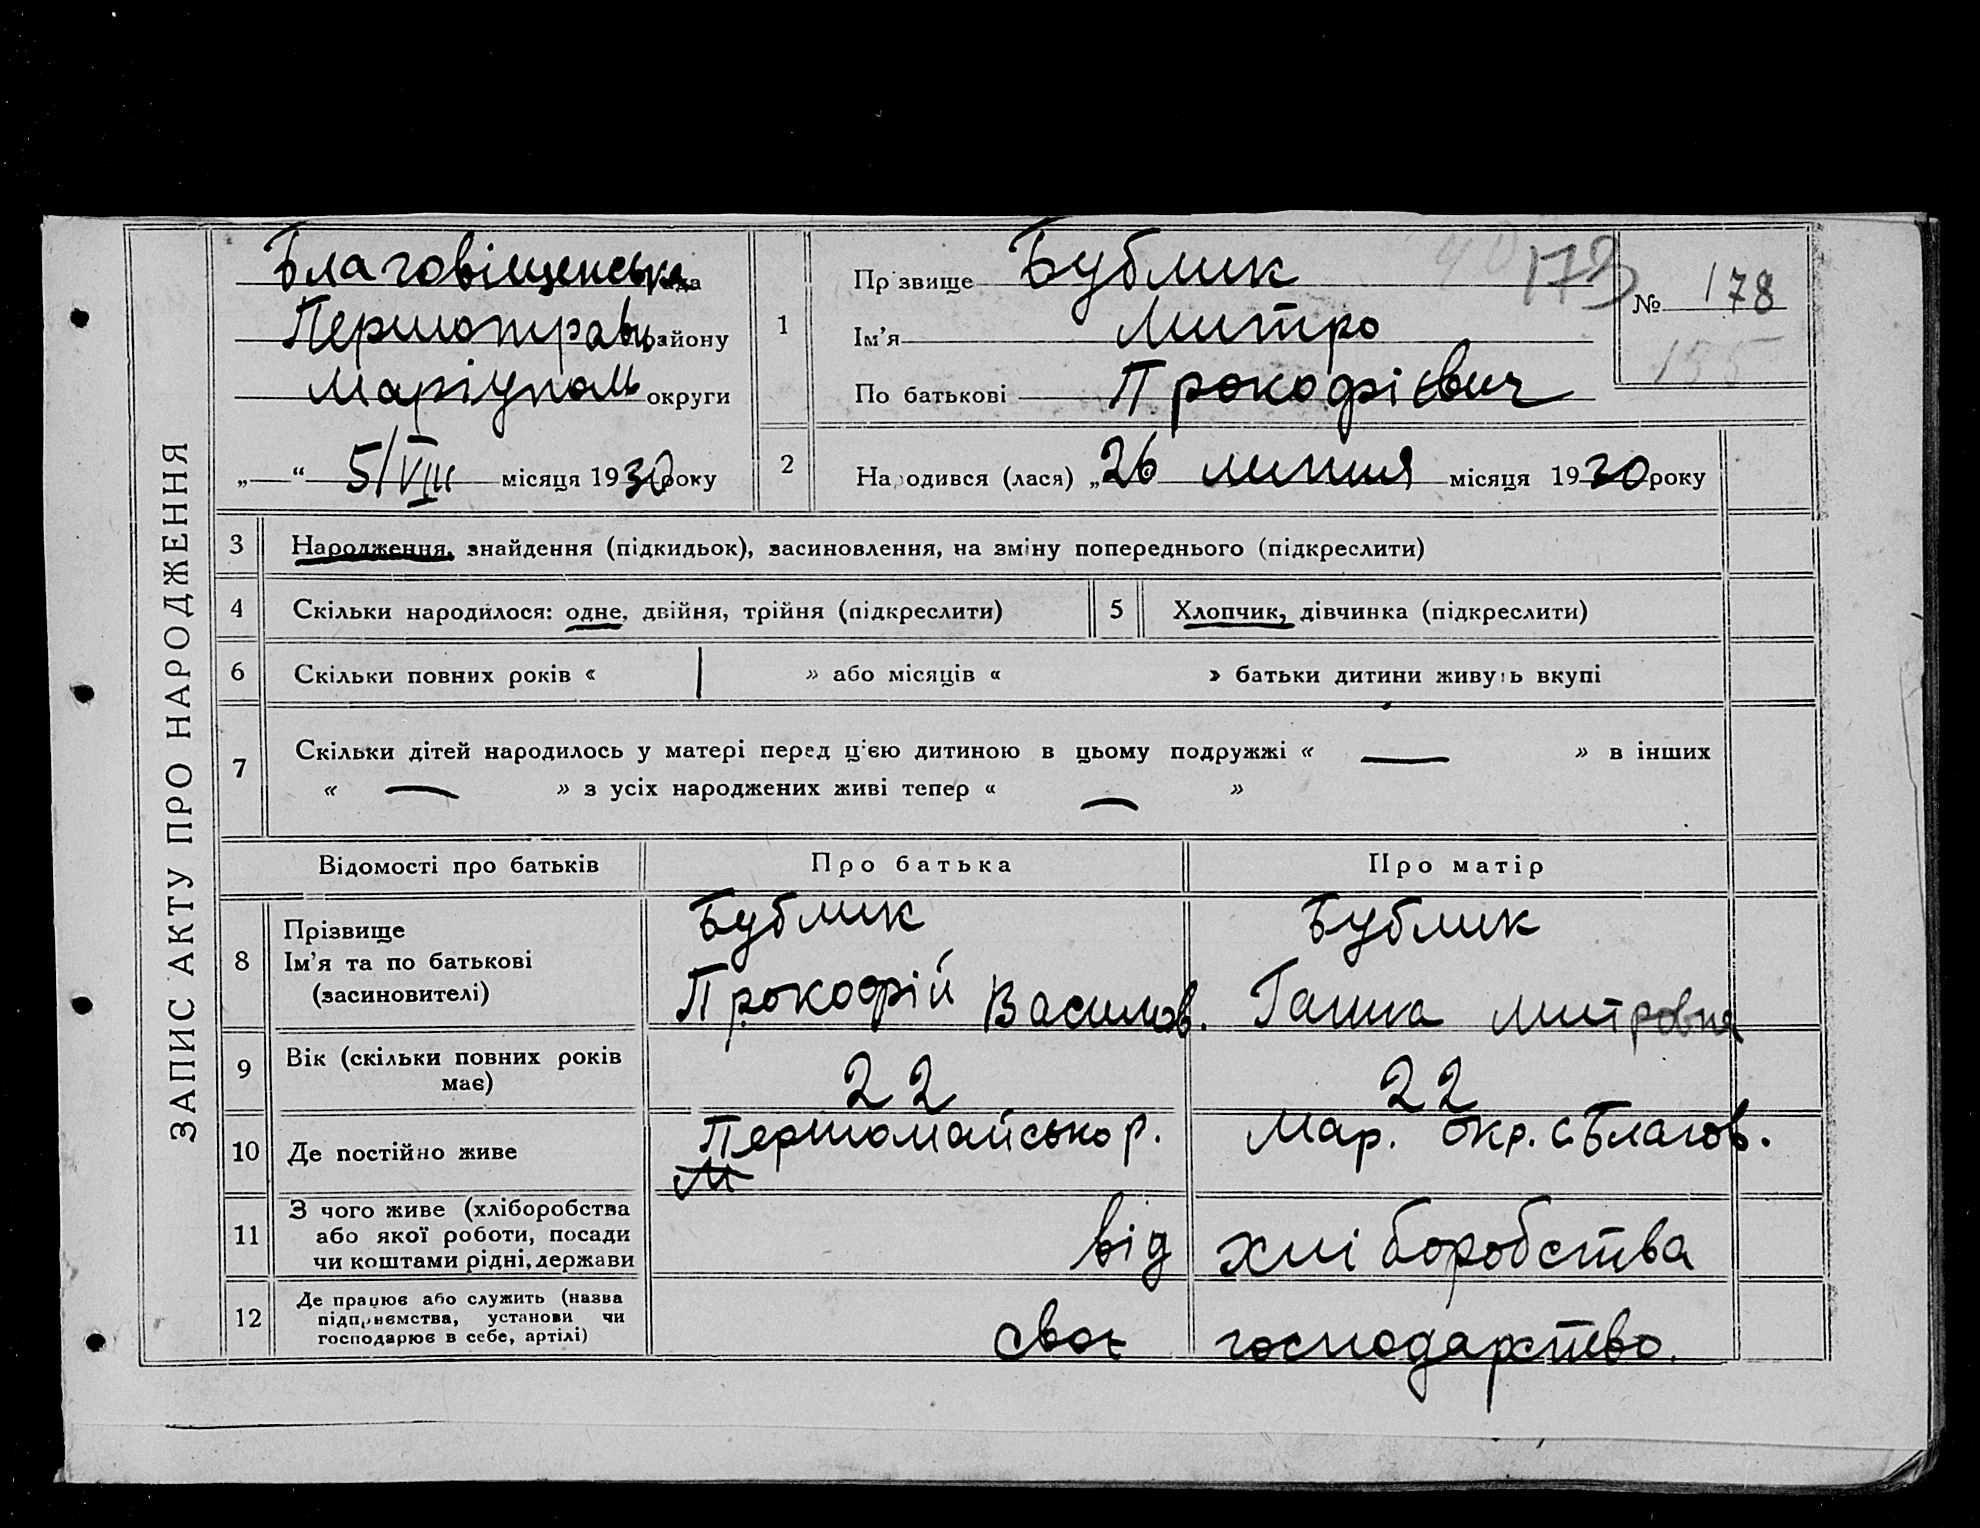 ЗАПИС АКТУ ПРО НАРОДЖЕННЯ
Благовіщенська рада
Першотравн району
Маріуполь округи
„ “ 5/VIII місяця 1930 року
1
Прізвище Бублик
Ім’я Митро
По батькові Прокофієвич
40 173
№ 178
155
2
Народився (лася) „26 липня місяця 1930 року
3 Народження, знайдення (підкидьок), засиновлення, на зміну попереднього (підкреслити)
4 Скільки народилося: одне, двійня, трійня (підкреслити) 5 Хлопчик, дівчинка (підкреслити)
6 Скільки повних років « 1 » або місяців « » батьки дитини живуть вкупі
7 Скільки дітей народилось у матері перед ц‘єю дитиною в цьому подружжі « — » в інших
« — » з усіх народжених живі тепер « — »
Відомості про батьків Про батька Про матір
8 Прізвище
Ім’я та по батькові
(засиновителі)
Бублик
Прокофрій Василов.
Бублик
Ганна Митровна
9 Вік (скільки повних років
має)
22 22
10 Де постійно живе Першомайсько р. Мар. окр. с Благов.
М
11 З чого живе (хліборобства
або якої роботи, посади
чи коштами рідні, держави
від хліборобства
12 Де працює або служить (назва
підприємства, установи чи
господарює в себе, артілі)
своє господарство.